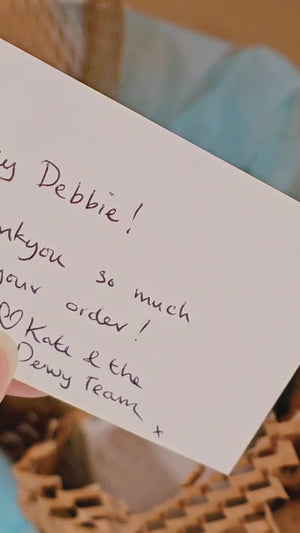 y Debbie!
nkyou so much
your order!
♡ Kate & the
Dewy Team x